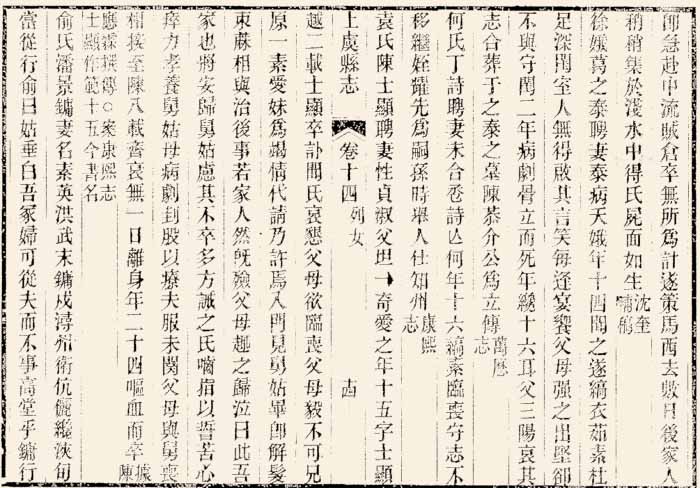 即急赴中流賊倉卒無所為計遂策馬西去數日後家人
稍稍集於淺水中得氏屍面如生沈奎補稿
徐孃葛之泰聘妻泰病夭娥年十四聞之遂縞衣茹素杜
足深閨室人無得啟其言笑每逢宴饗父母強之出堅卻
不與守閨二年病劇骨立而死年纔十六耳父三陽哀其
志合葬于之泰之墓陳恭介公為立傳萬厯志
何氏丁詩聘妻未合巹詩亾何年十六縞素臨喪守志不
移繼姪耀先為嗣孫時舉人仕知州康熙志
袁氏陳士顯聘妻性貞淑父坦一奇愛之年十五字士顯
上虞縣志 卷十四列女 十四
越二載士顯卒訃聞氏哀懇父母欲臨喪父母毅不可兄
原一素愛妹為竭情代請乃許焉入門見舅姑畢即解髮
束蔴相與治後事若家人然旣殮父母趣之歸泣曰此吾
家也將安歸舅姑慮其不卒多方諷之氏嚙指以誓苦心
瘁力孝養舅姑母病劇刲股以療夫服未闋父母與舅喪
相接至陳八載齊哀無一日離身年二十四嘔血而卒據陳
應霖撰傳○案康熙志
士顯作範十五今書名
俞氏潘景鏞妻名素英洪武末鏞戍潯州衛伉儷纔浹旬
當從行俞曰姑垂白吾冢婦可從夫而不事高堂乎鏞行